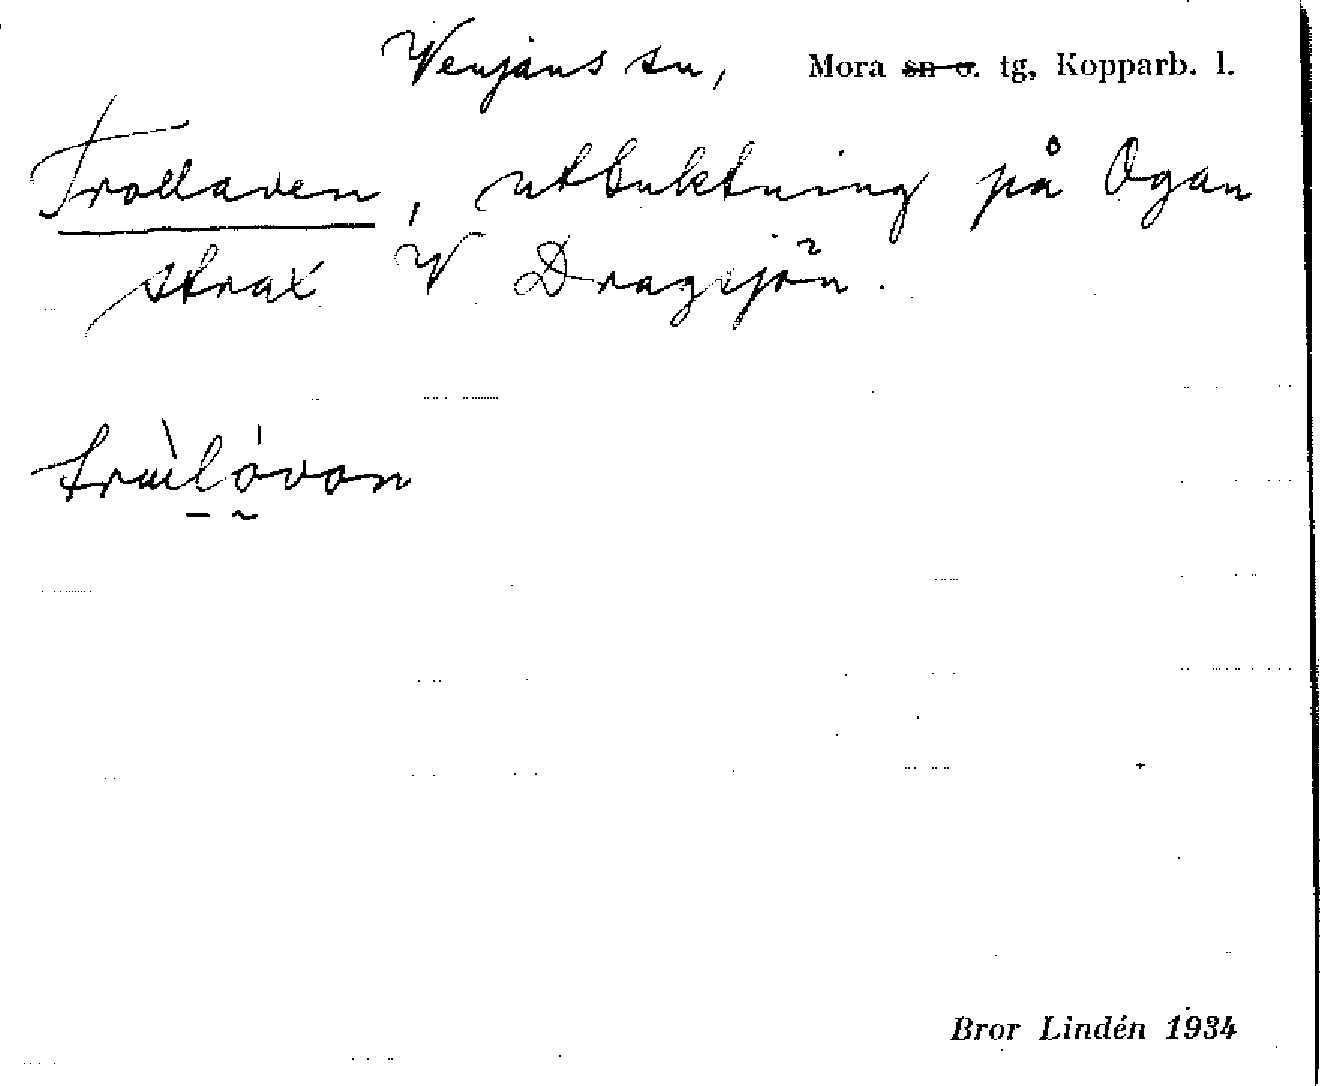 Venjans sn, Mora sn o. tg, Kopparb. l.
Trollaven, utbuktning på Ogan
strax V Dragsjön.
Bror Lindén 1934